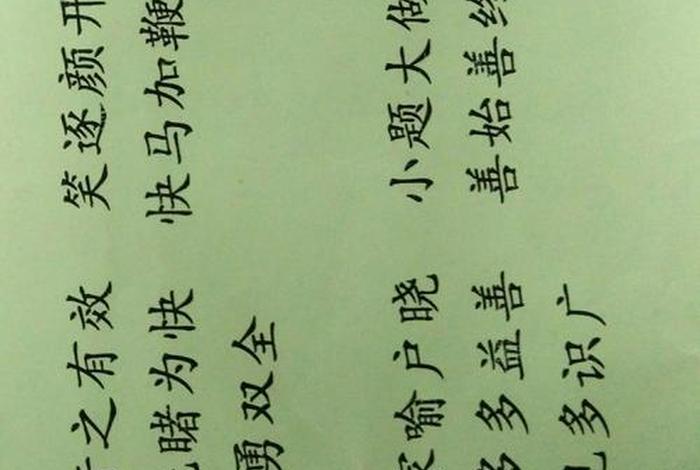 之有效 笑逐颜开
睹为快 快马加鞭
勇双全
家喻户晓 小题大做
多多益善 善始善终
见多识广